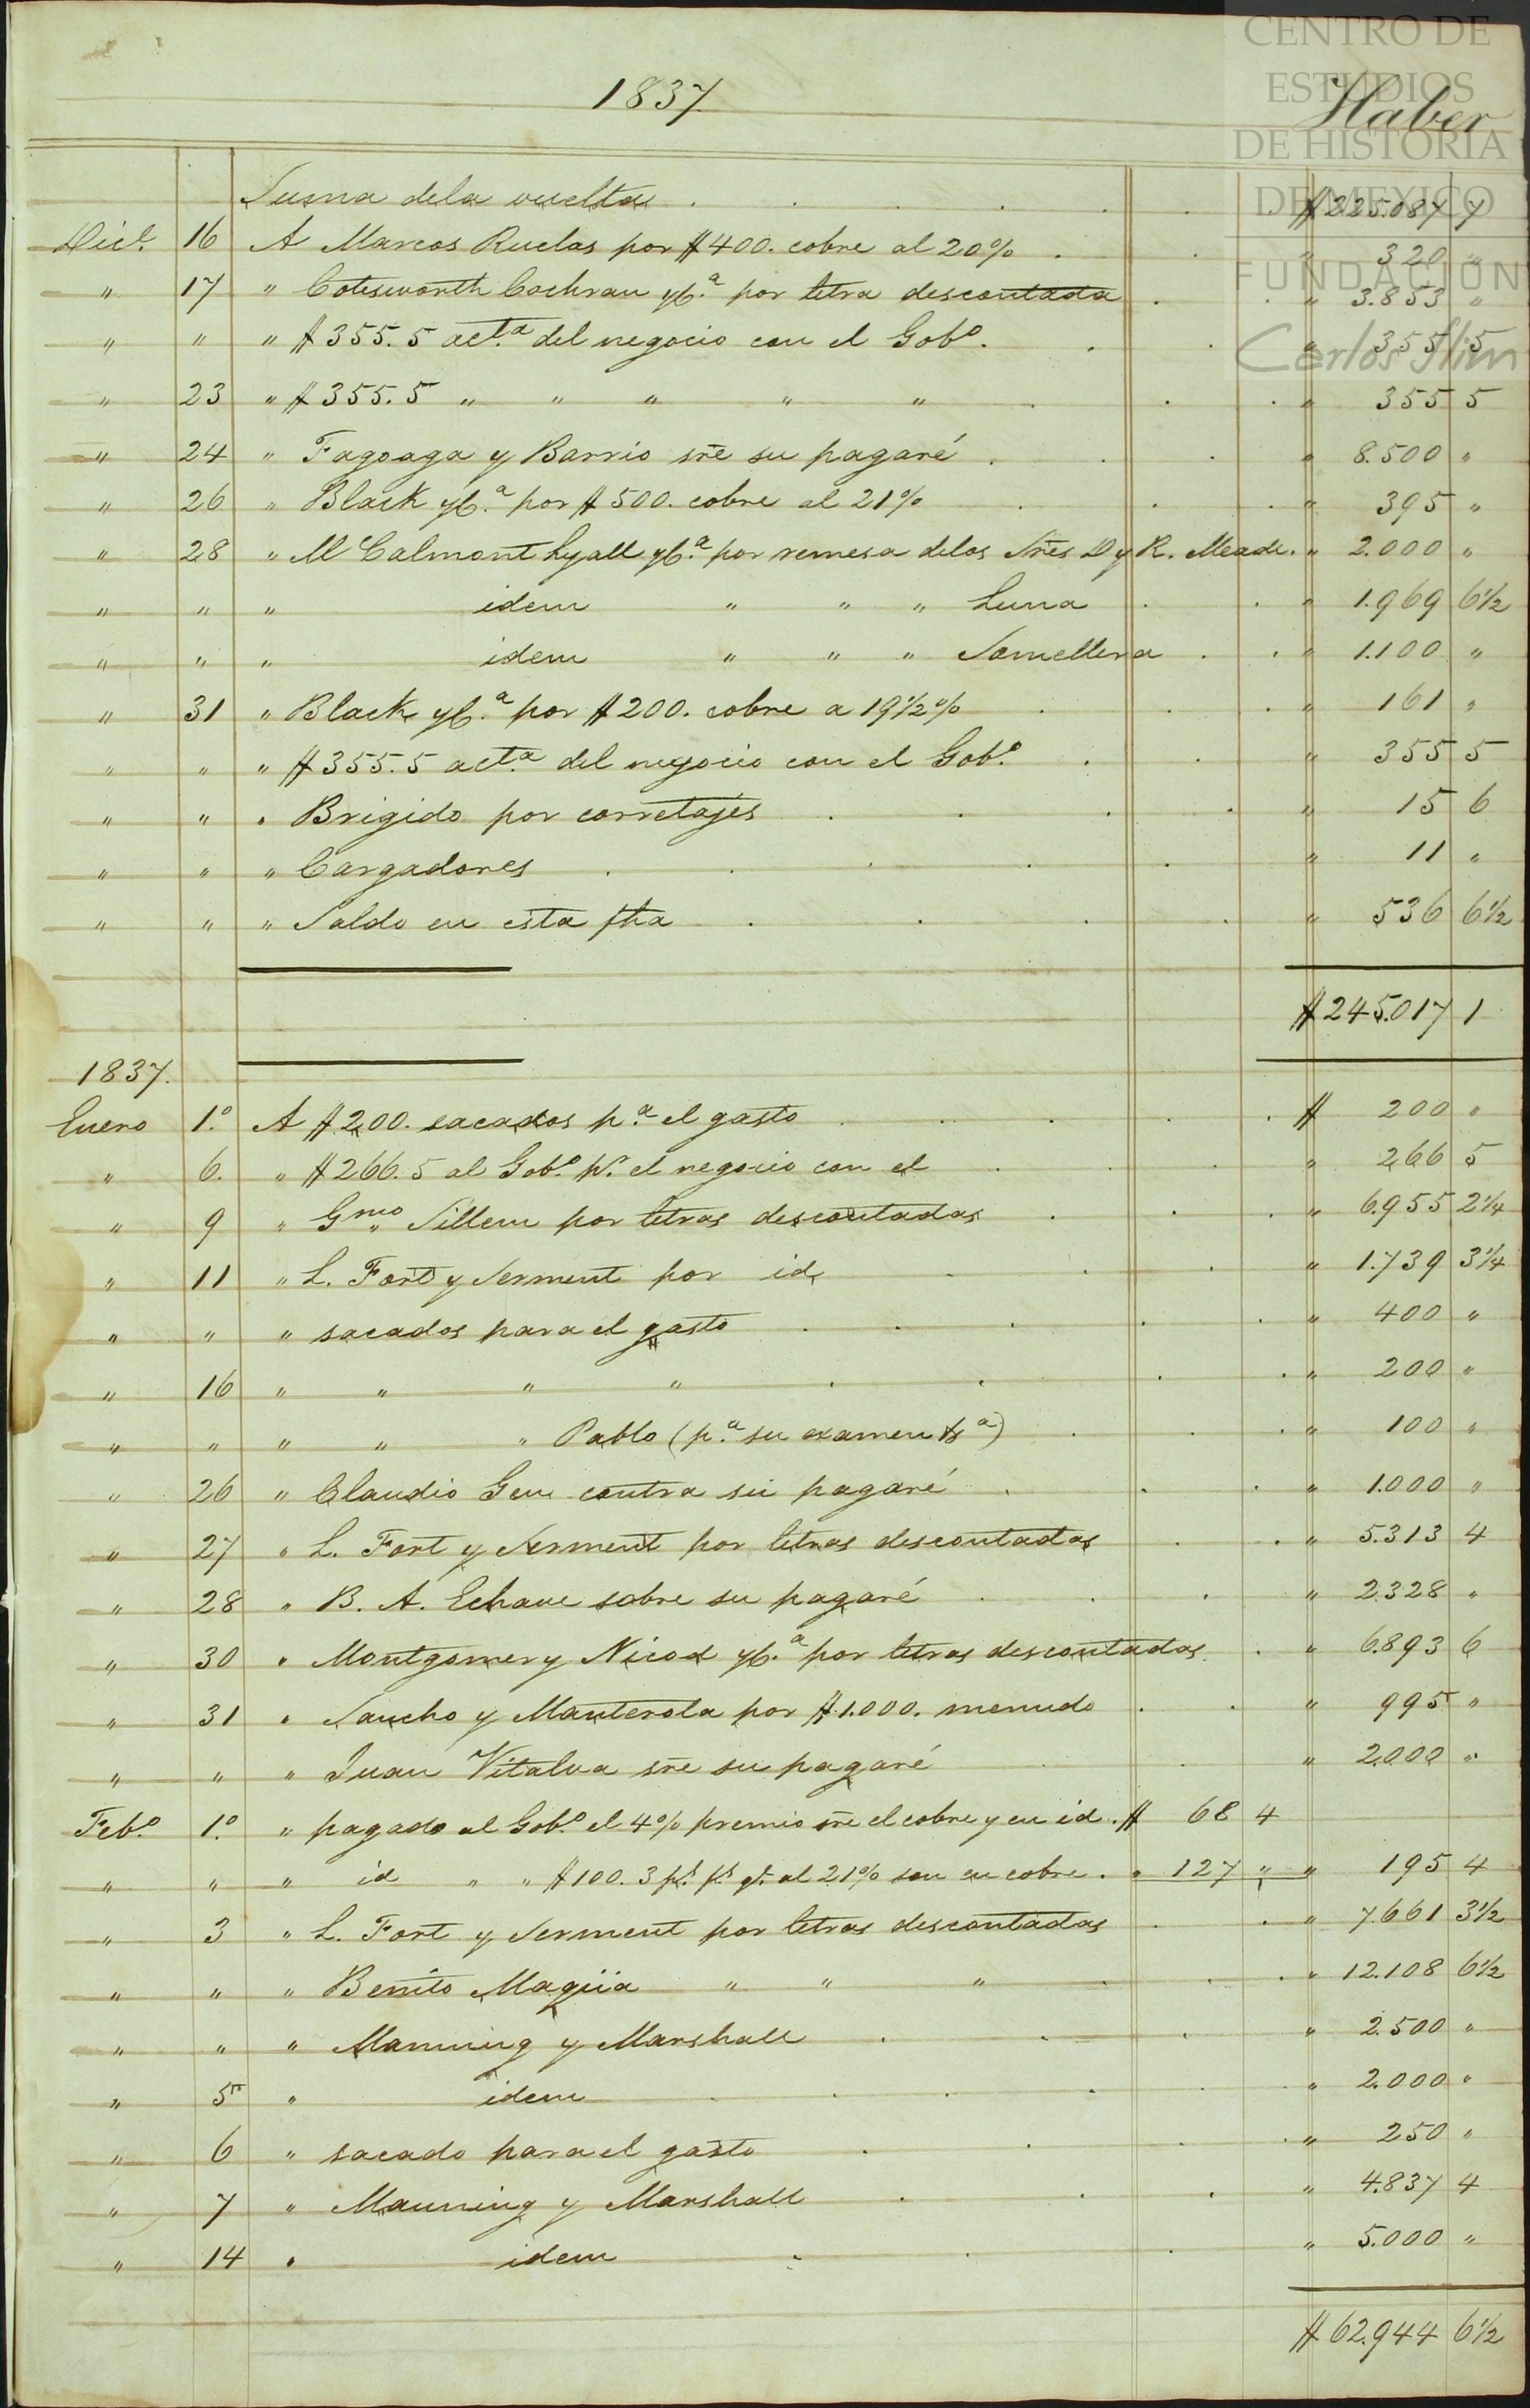 CENTRO DE
ESTUDIOS
DE HISTORIA
DE MEXICO
FUNDACIÓN
Carlos Slim
1837.
Haber
Suma dela vuelta . . . . . . $ 225.087 7
Dice. 16 A Marcos Ruelas por $400. cobre al 20% . . " 320 "
" 17 " Cotesworth Cochran yC.a por letra descontada . . " 3.853 "
" " " $355.5 act.a del negocio con el Gob.o . . . " 355 5
" 23 " $355.5 " " " " " . . . " 355 5
" 24 " Fagoaga y Barrio sre su pagaré . . . " 8.500 "
" 26 " Black yC.a por $500. cobre al 21% . . . " 395 "
" 28 " McCalmont Lyall yC.a por remesa delos Sres D y R. Meade. " 2.000 "
" " " idem " " " Luna . . " 1.969 6½
" " " idem " " " Somellera . . " 1.100 "
" 31 " Black yC.a por $200. cobre a 19½% . . . " 161 "
" " " $355.5 act.a del negocio con el Gob.o . . " 355 5
" " " Brigido por corretajes . . . . " 15 6
" " " Cargadores . . . . . " 11 "
" " " Saldo en esta fha . . . . " 536 6½
$ 245.017 1
1837.
Enero 1.o A $200. sacados p.a el gasto . . . . . $ 200 "
" 6. " $266.5 al Gob.o p.r el negocio con el . . " 266 5
" 9 " Gmo Sillem por letras descontadas . . . " 6.955 2¼
" 11 " L. Fort y Serment por id. . . . " 1.739 3¼
" " " sacados para el gasto . . . . . " 400 "
" 16 " " " " . . . . " 200 "
" " " " " Pablo (p.a su examen &a) . . . " 100 "
" 26 " Claudio Gen contra su pagaré . . . " 1.000 "
" 27 " L. Fort y Serment por letras descontadas . . " 5.313 4
" 28 " B. A. Echave sobre su pagaré . . . " 2.328 "
" 30 " Montgomery Nicod yC.a por letras descontadas. . " 6.893 6
" 31 " Sancho y Manterola por $1.000. menudo . . " 995 "
" " " Juan Vitalva sre su pagaré . . " 2.000 "
Feb.o 1.o " pagado al Gob.o el 4% premio sre el cobre y en id. $ 68 4
" " " id " " $100. 3 p.s p.r q.e al 21% son en cobre . " 127 " " 195 4
" 3 " L. Fort y Serment por letras descontadas . . " 7.661 3½
" " " Benito Magüa " " " . . . " 12.108 6½
" " " Manning y Marshall . . . " 2.500 "
" 5 " idem . . . . . " 2.000 "
" 6 " sacado para el gasto . . . . " 250 "
" 7 " Manning y Marshall . . . " 4.837 4
" 14 " idem . . . " 5.000 "
$ 62.944 6½